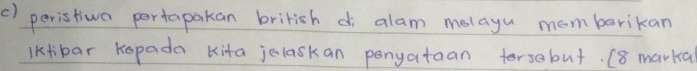 c) peristiwa pertapakan british di alam melayu memberikan
iktibar kepada kita jelaskan penyataan tersebut. (8 markah